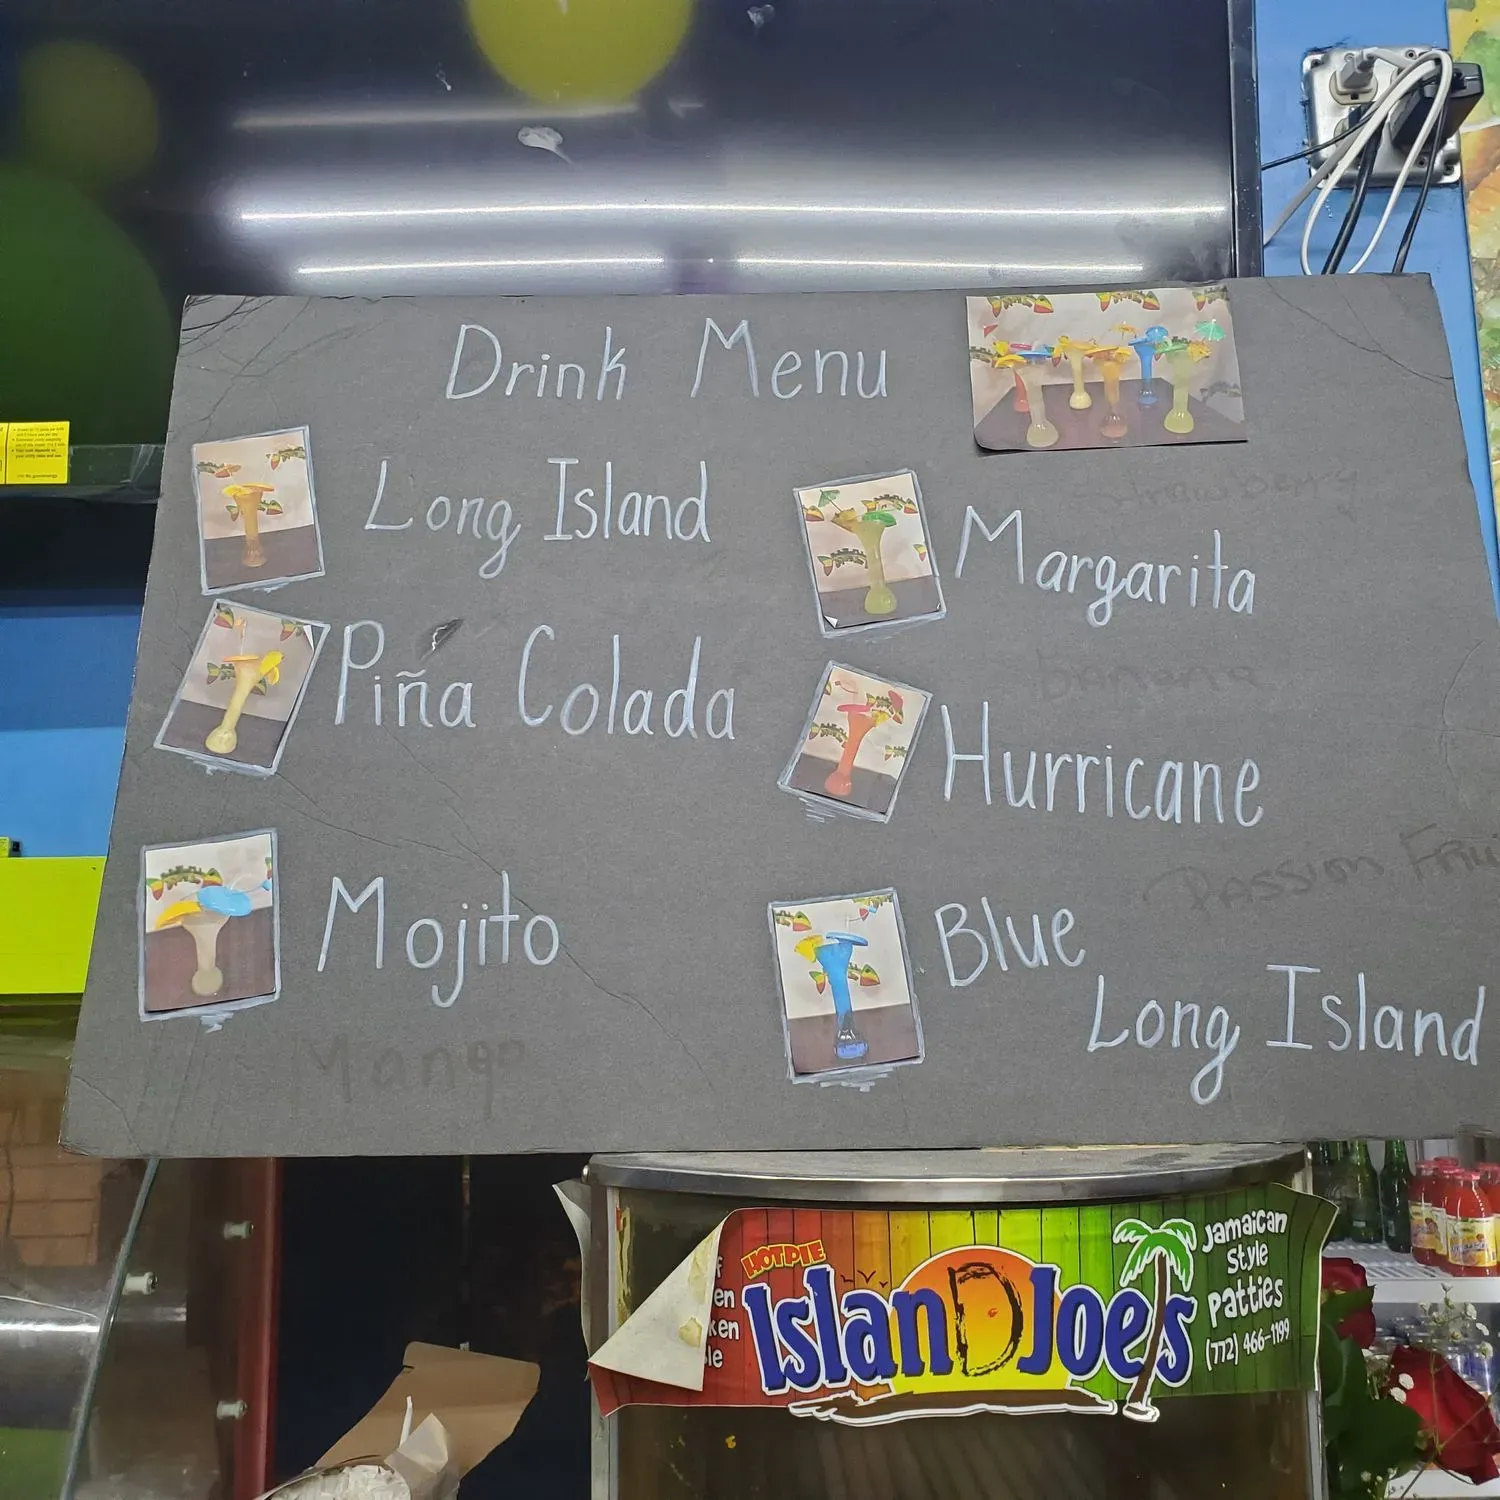 Drink Menu
Long Island
Piña Colada
Mojito
Mango
strawberry
Margarita
banana
Hurricane
Passion
Blue
Long Island
HOT PIE
IslanD Joe's
Jamaican
Style
Patties
(772) 466-1199